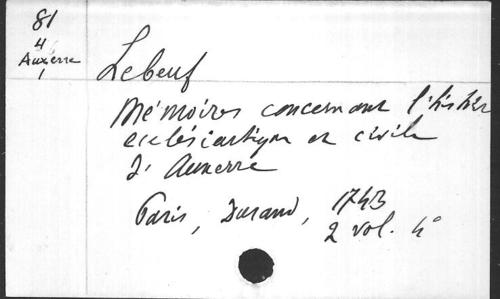 81
4
Auxerre
1
Lebeuf
Mémoires concernant l'histoire
ecclésiastique et civile
d'Auxerre
Paris, Durand, 1743
2 vol. 4°